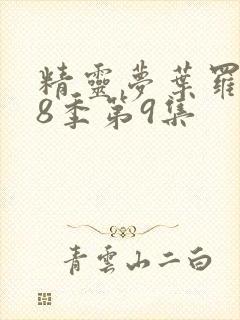 精靈夢葉羅
8季第9集
青雲山二白